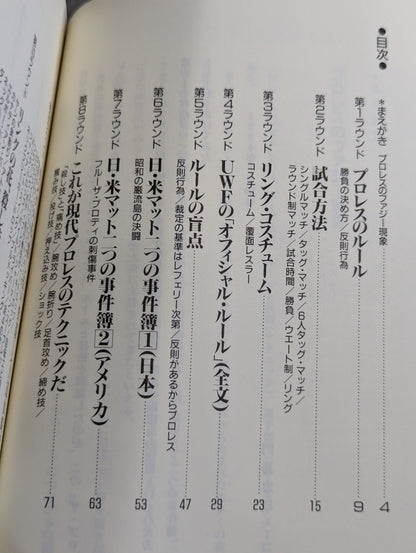 ●目次●
＊まえがき プロレスのファジー現象 4
第1ラウンド プロレスのルール 9
勝負の決め方／反則行為
第2ラウンド 試合方法 15
シングルマッチ／タッグ・マッチ／6人タッグ・マッチ／
ラウンド制マッチ／試合時間／勝負／ウエート制／リング
第3ラウンド リング・コスチューム 23
コスチューム／覆面レスラー
第4ラウンド UWFの「オフィシャル・ルール」(全文) 29
第5ラウンド ルールの盲点 47
反則行為／裁定の基準はレフェリー次第／反則があるからプロレス
第6ラウンド 日・米マット二つの事件簿［1］(日本) 53
昭和の巌流島の決闘
第7ラウンド 日・米マット二つの事件簿［2］(アメリカ) 63
ブルーザ・ブロディの刺傷事件
第8ラウンド これが現代プロレスのテクニックだ 71
「殺し技」と「痛め技」／腕攻め／腕折り／足首攻め／締め技／
痛み技／投げ技／押え込み技／ショック技